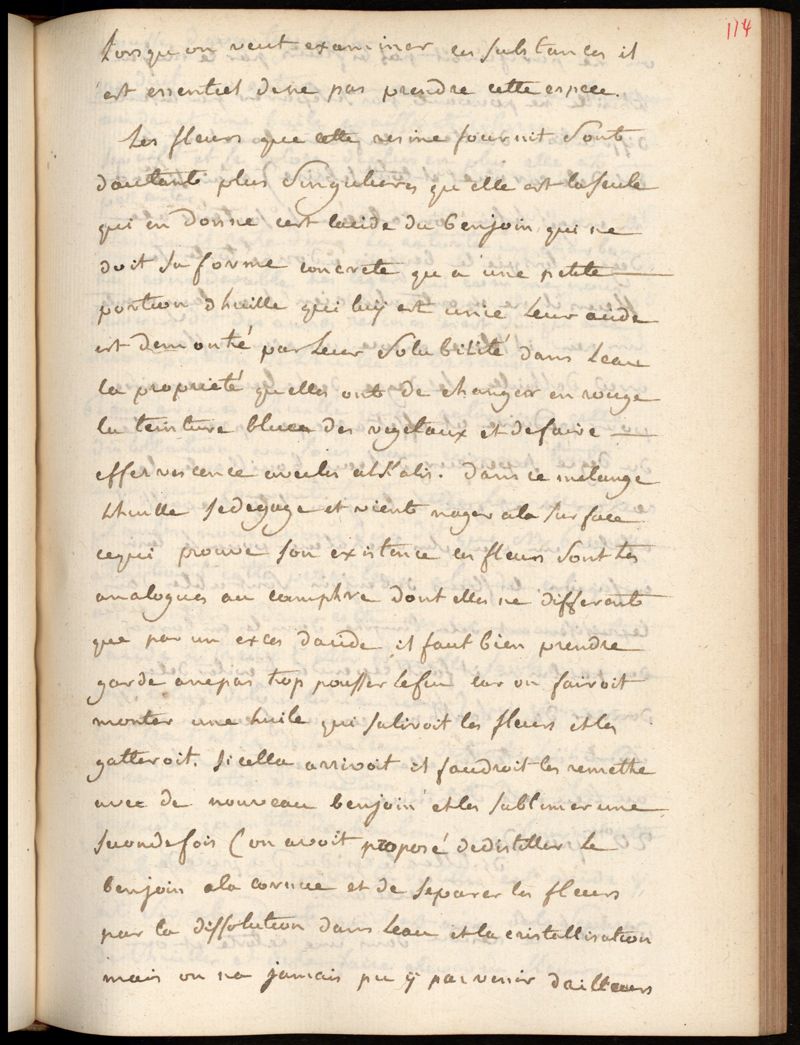 114
Lorsqu on veut examiner ces substances il
est essentiel de ne pas prendre cette espece.
Les fleurs que cette resine fournit sont
dautant plus singulieres qu elle est la seule
qui en donne cest lacide du benjoin qui ne
doit sa forme concrete qu a une petite
portion dhuille qui luy est unie Leur acide
est demontré par Leur solubilité dans Leau
la proprieté quelles ont de changer en rouge
la teinture bleue des vegetaux et de faire
effervescence avec les alkalis. dans ce melange
Lhuille se degage et vient nager a la surface
ce qui prouve son existence ces fleurs sont Les
analogues au camphre dont elles ne different
que par un exces dacide, il faut bien prendre
garde a ne pas trop pousser le feu car on fairoit
monter une huile qui saliroit les fleurs et les
gatteroit. si cella arrivoit il faudroit les remettre
avec de nouveau benjoin et les sublimer une
seconde fois (on avoit proposé de distiller le
benjoin a la cornue et de separer les fleurs
par la dissolution dans Leau et la cristallisation
mais on na jamais pu y parvenir dailleurs